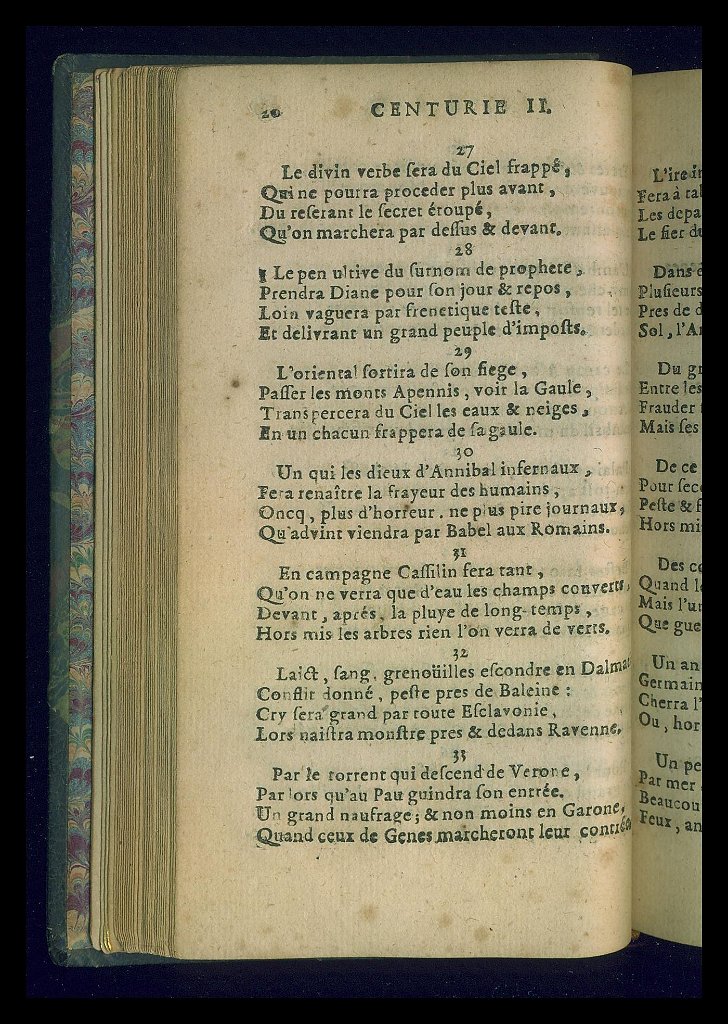 20 CENTURIE II.
27
Le divin verbe sera du Ciel frappé,
Qui ne pourra proceder plus avant,
Du reserant le secret étoupé,
Qu'on marchera par dessus & devant.
28
Le pen ultive du surnom de prophete,
Prendra Diane pour son jour & repos,
Loin vaguera par frenetique teste,
Et delivrant un grand peuple d'imposts.
29
L'oriental sortira de son siege,
Passer les monts Apennis, voir la Gaule,
Transpercera du Ciel les eaux & neiges,
En un chacun frappera de sa gaule.
30
Un qui les dieux d'Annibal infernaux,
Fera renaître la frayeur des humains,
Oncq, plus d'horreur. ne plus pire journaux,
Qu'advint viendra par Babel aux Romains.
31
En campagne Cassilin fera tant,
Qu'on ne verra que d'eau les champs converts,
Devant, aprés, la pluye de long-temps,
Hors mis les arbres rien l'on verra de verts.
32
Laict, sang, grenoüilles escondre en Dalmat
Conflit donné, peste pres de Baleine:
Cry sera grand par toute Esclavonie,
Lors naistra monstre pres & dedans Ravenne.
33
Par le torrent qui descend de Verone,
Par lors qu'au Pau guindra son entrée.
Un grand naufrage; & non moins en Garone,
Quand ceux de Genes marcheront leur contrée
L'ire
Fera à
Les
Le fier
Dans
Plusieurs
Pres de
Sol, l'
Du
Entre les
Frauder
Mais ses
De ce
Pour
Peste &
Hors
Des
Quand
Mais
Que
Un an
Germain
Cherra
Ou, hor
Un
Par mer
Beaucou
Feux, an